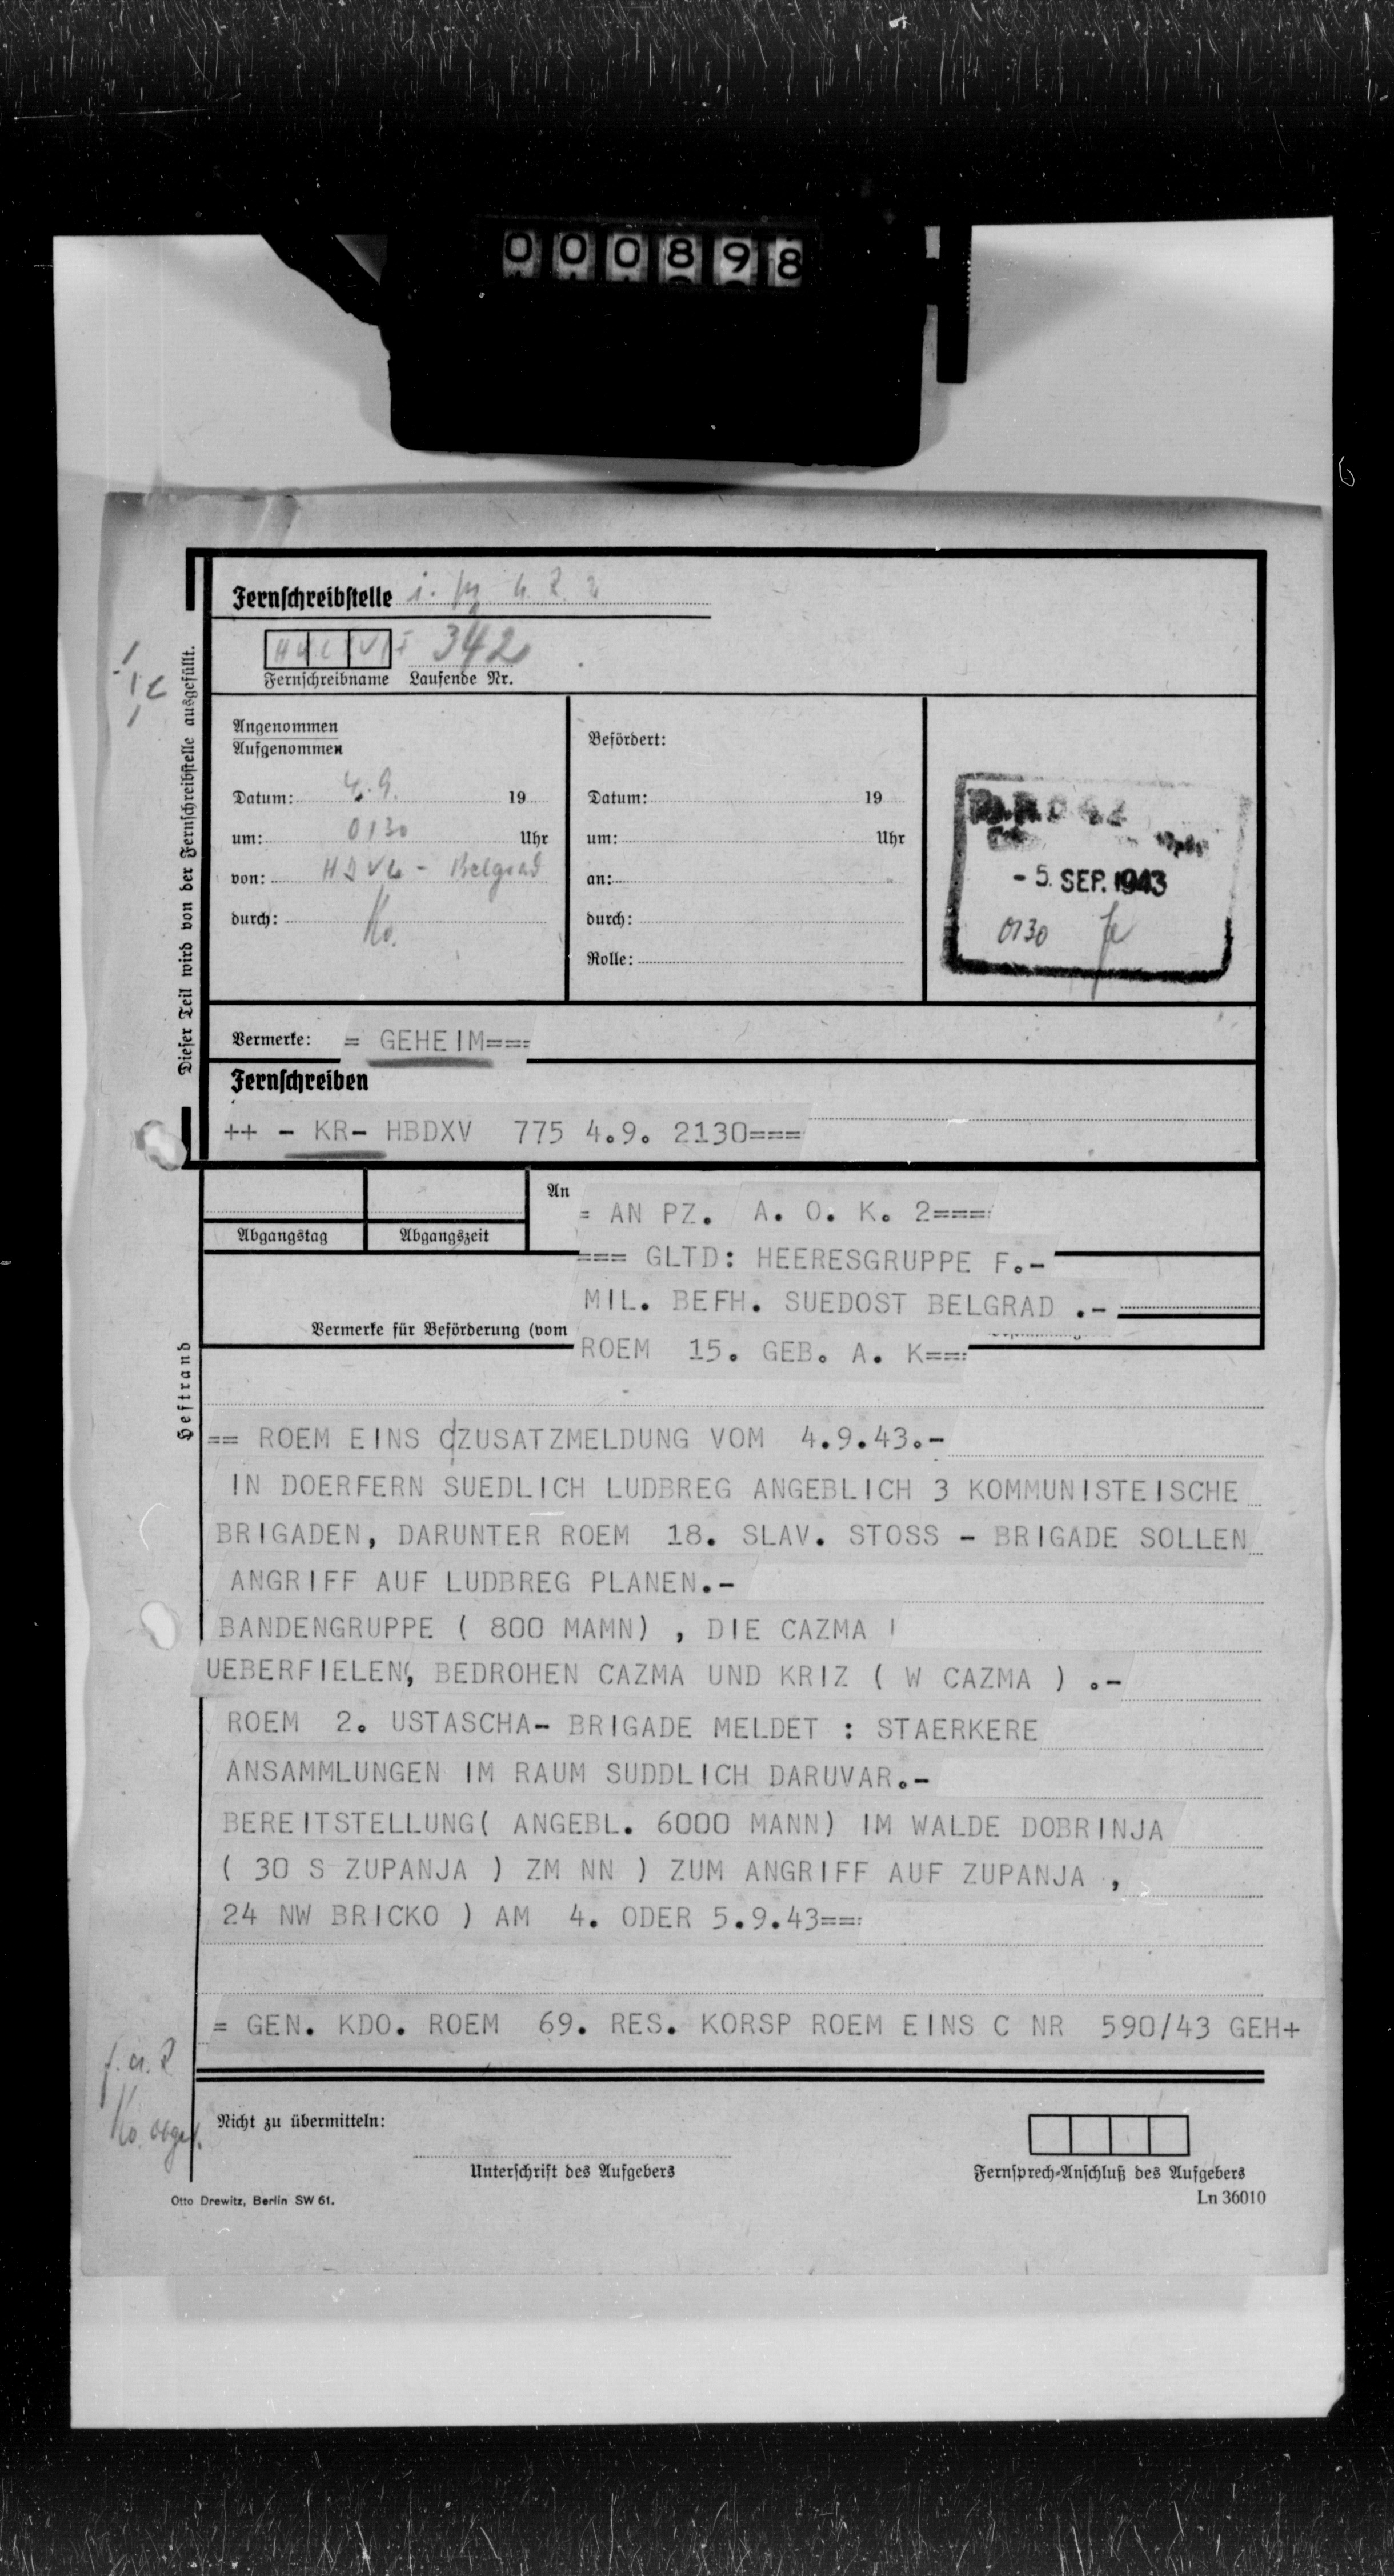 000898
Fernschreibstelle
342
Fernschreibname Laufende Nr.
Angenommen
Aufgenommen
Datum: 4.9. 19
um: 0130 Uhr
von: Belgrad
durch: Ko.
Befördert:
Datum: 19
um: Uhr
an:
durch:
Rolle:
- 5. SEP. 1943
0130
Dieser Teil wird von der Fernschreibstelle ausgefüllt.
Vermerke: = GEHEIM===
Fernschreiben
++ - KR- HBDXV 775 4.9. 2130===
An = AN PZ. A. O. K. 2====
Abgangstag Abgangszeit
=== GLTD: HEERESGRUPPE F.-
MIL. BEFH. SUEDOST BELGRAD .-
Vermerke für Beförderung (vom
ROEM 15. GEB. A. K===
Heftrand
== ROEM EINS CZUSATZMELDUNG VOM 4.9.43.-
IN DOERFERN SUEDLICH LUDBREG ANGEBLICH 3 KOMMUNISTEISCHE
BRIGADEN, DARUNTER ROEM 18. SLAV. STOSS - BRIGADE SOLLEN
ANGRIFF AUF LUDBREG PLANEN.-
BANDENGRUPPE ( 800 MAMN) , DIE CAZMA
UEBERFIELEN, BEDROHEN CAZMA UND KRIZ ( W CAZMA ) .-
ROEM 2. USTASCHA- BRIGADE MELDET : STAERKERE
ANSAMMLUNGEN IM RAUM SUDDLICH DARUVAR.-
BEREITSTELLUNG( ANGEBL. 6000 MANN) IM WALDE DOBRINJA
( 30 S ZUPANJA ) ZM NN ) ZUM ANGRIFF AUF ZUPANJA ,
24 NW BRICKO ) AM 4. ODER 5.9.43===
= GEN. KDO. ROEM 69. RES. KORSP ROEM EINS C NR 590/43 GEH+
Nicht zu übermitteln:
Unterschrift des Aufgebers
Fernsprech-Anschluß des Aufgebers
Otto Drewitz, Berlin SW 61.
Ln 36010